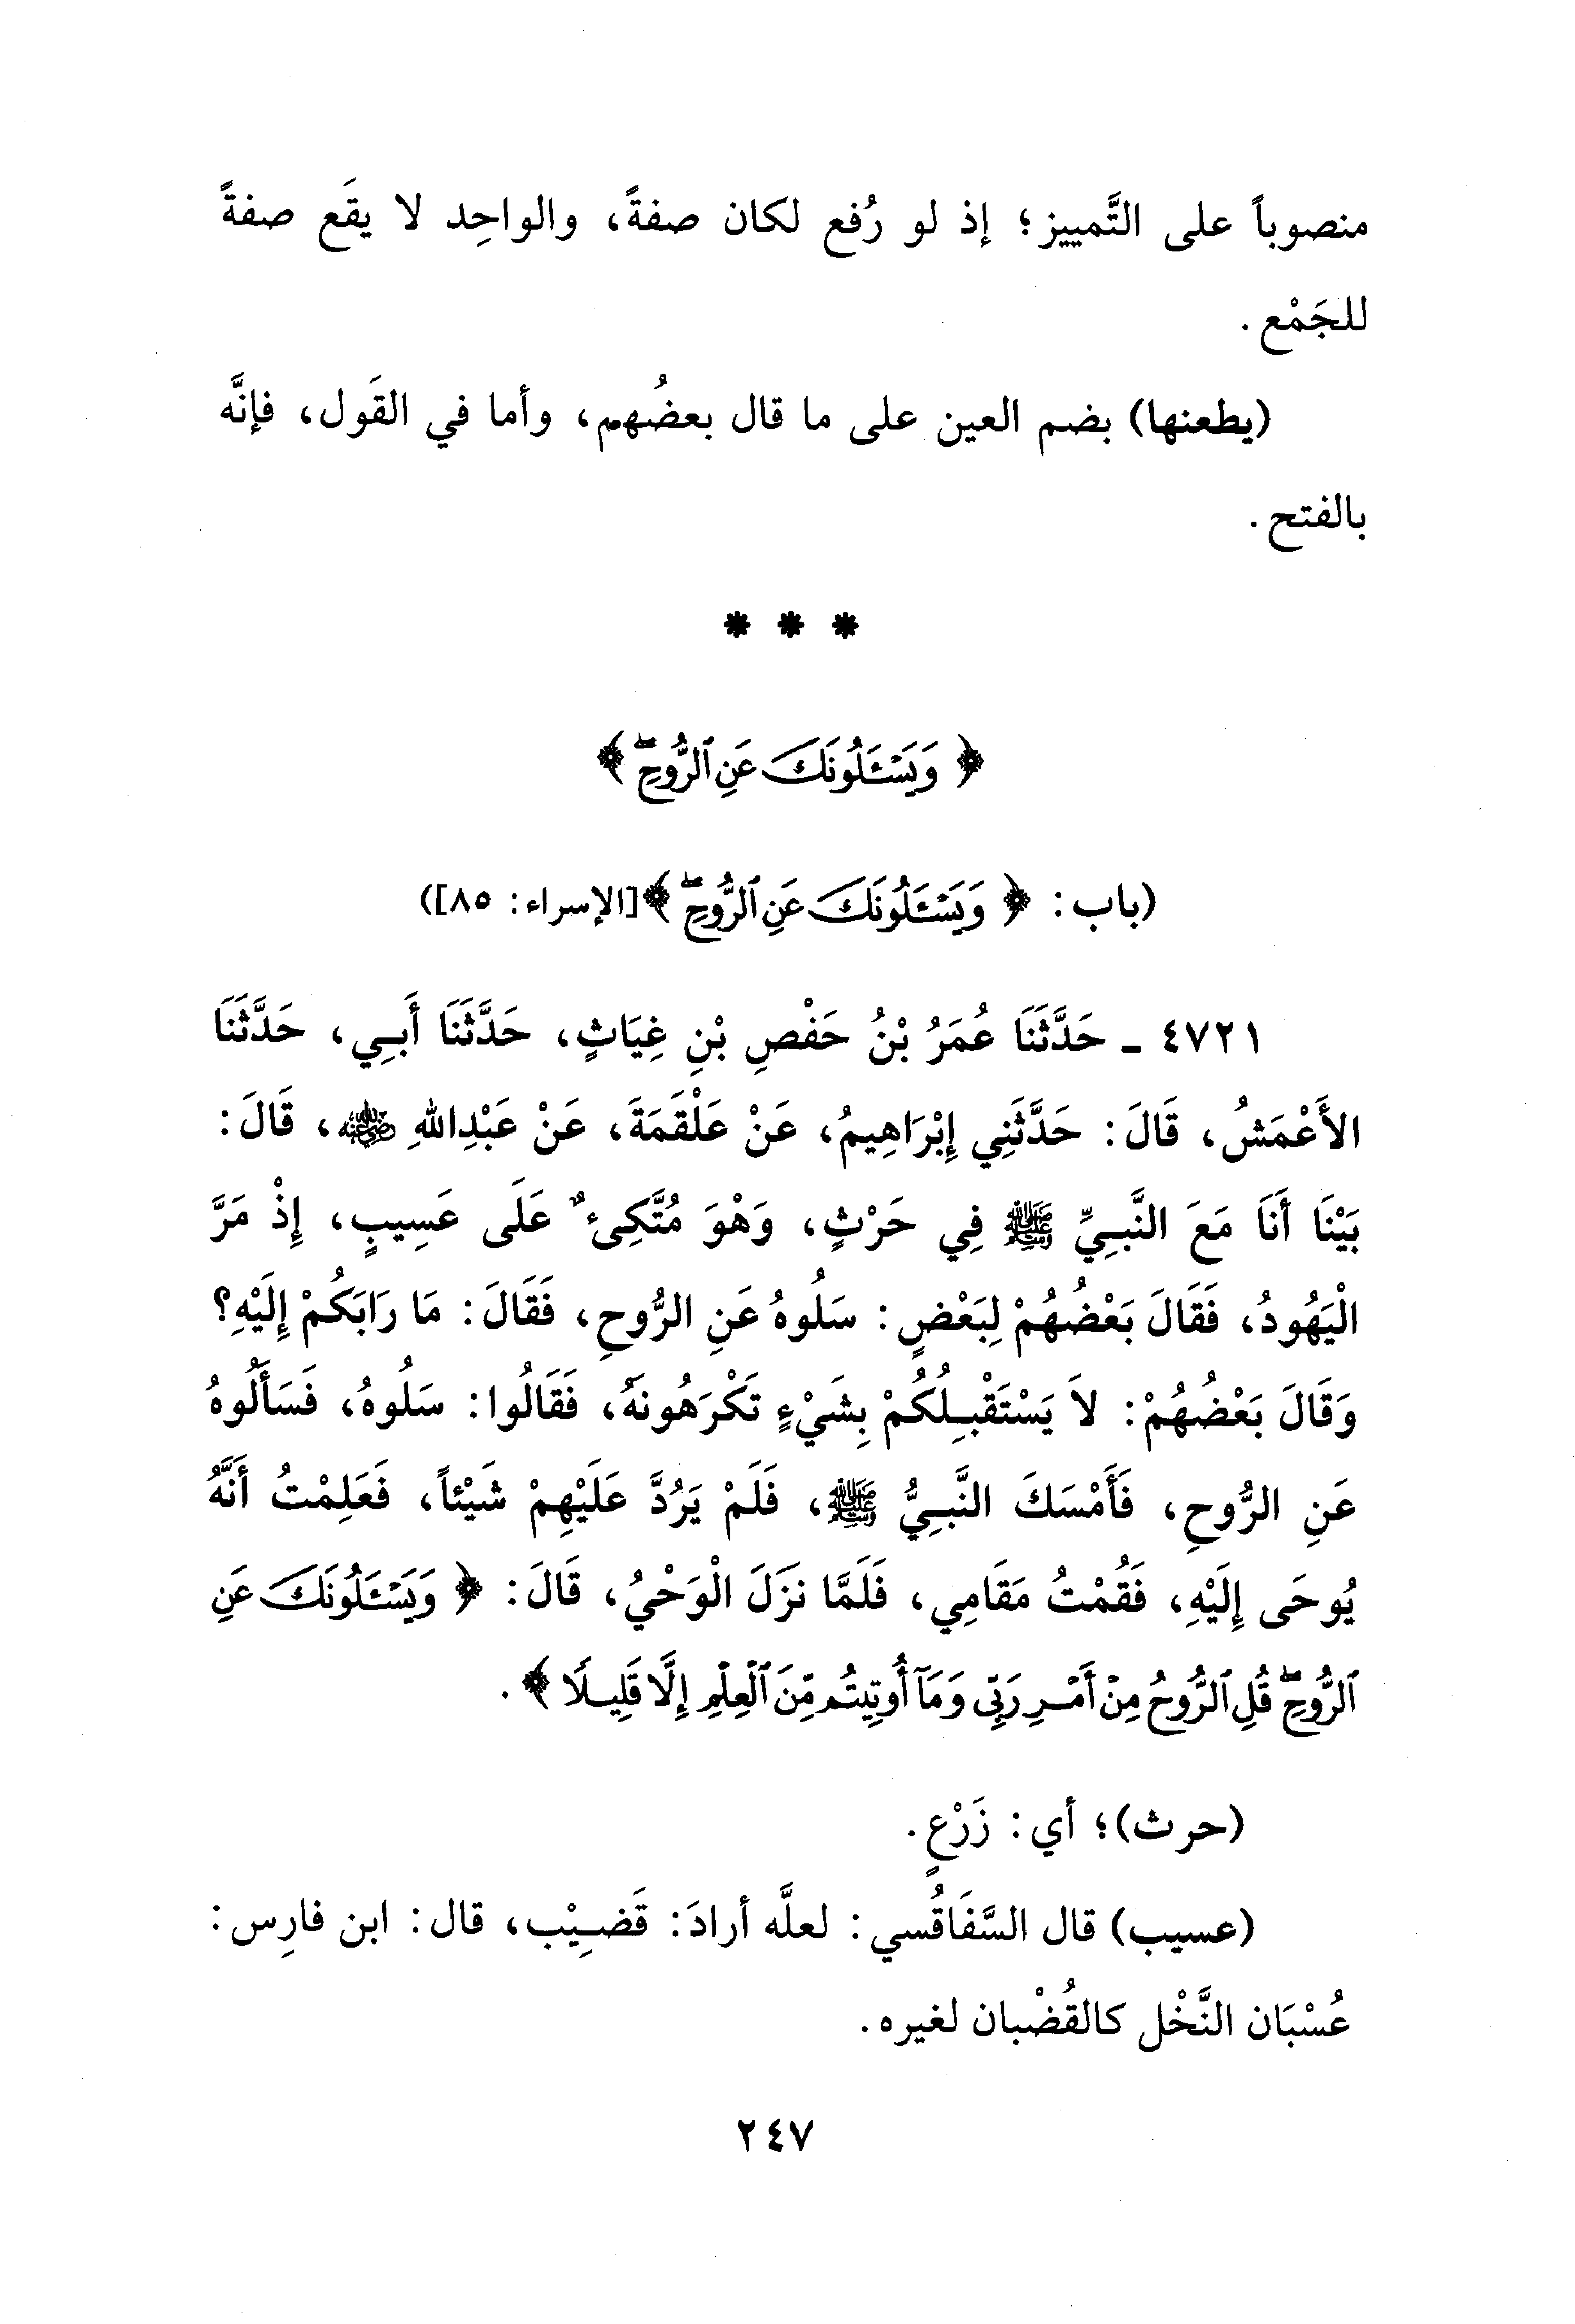 منصوباً على التَّمييز؛ إذ لو رُفع لكان صفةً، والواحِد لا يقَع صفةً
للجَمْع.
(يطعنها) بضم العين على ما قال بعضُهم، وأما في القَول، فإنَّه
بالفتح.
* * *
﴿ وَيَسْـَٔلُونَكَ عَنِ ٱلرُّوحِۖ ﴾
(باب: ﴿ وَيَسْـَٔلُونَكَ عَنِ ٱلرُّوحِۖ ﴾[الإسراء: ٨٥])
٤٧٢١ ـ حَدَّثَنَا عُمَرُ بْنُ حَفْصِ بْنِ غِيَاثٍ، حَدَّثَنَا أَبِي، حَدَّثَنَا
الأَعْمَشُ، قَالَ: حَدَّثَنِي إِبْرَاهِيمُ، عَنْ عَلْقَمَةَ، عَنْ عَبْدِاللهِ رضي الله عنه، قَالَ:
بَيْنَا أَنَا مَعَ النَّبِيِّ ﷺ فِي حَرْثٍ، وَهْوَ مُتَّكِئٌ عَلَى عَسِيبٍ، إِذْ مَرَّ
الْيَهُودُ، فَقَالَ بَعْضُهُمْ لِبَعْضٍ: سَلُوهُ عَنِ الرُّوحِ، فَقَالَ: مَا رَابَكُمْ إِلَيْهِ؟
وَقَالَ بَعْضُهُمْ: لاَ يَسْتَقْبِلُكُمْ بِشَيْءٍ تَكْرَهُونَهُ، فَقَالُوا: سَلُوهُ، فَسَأَلُوهُ
عَنِ الرُّوحِ، فَأَمْسَكَ النَّبِيُّ ﷺ، فَلَمْ يَرُدَّ عَلَيْهِمْ شَيْئاً، فَعَلِمْتُ أَنَّهُ
يُوحَى إِلَيْهِ، فَقُمْتُ مَقَامِي، فَلَمَّا نَزَلَ الْوَحْيُ، قَالَ: ﴿ وَيَسْـَٔلُونَكَ عَنِ
ٱلرُّوحِۖ قُلِ ٱلرُّوحُ مِنْ أَمْرِ رَبِّى وَمَآ أُوتِيتُم مِّنَ ٱلْعِلْمِ إِلَّا قَلِيلًا ﴾.
(حرث)؛ أي: زَرْعٍ.
(عسيب) قال السَّفَاقُسي: لعلَّه أرادَ: قَضِيْب، قال: ابن فارِس:
عُسْبَان النَّخْل كالقُضْبان لغيره.
٢٤٧